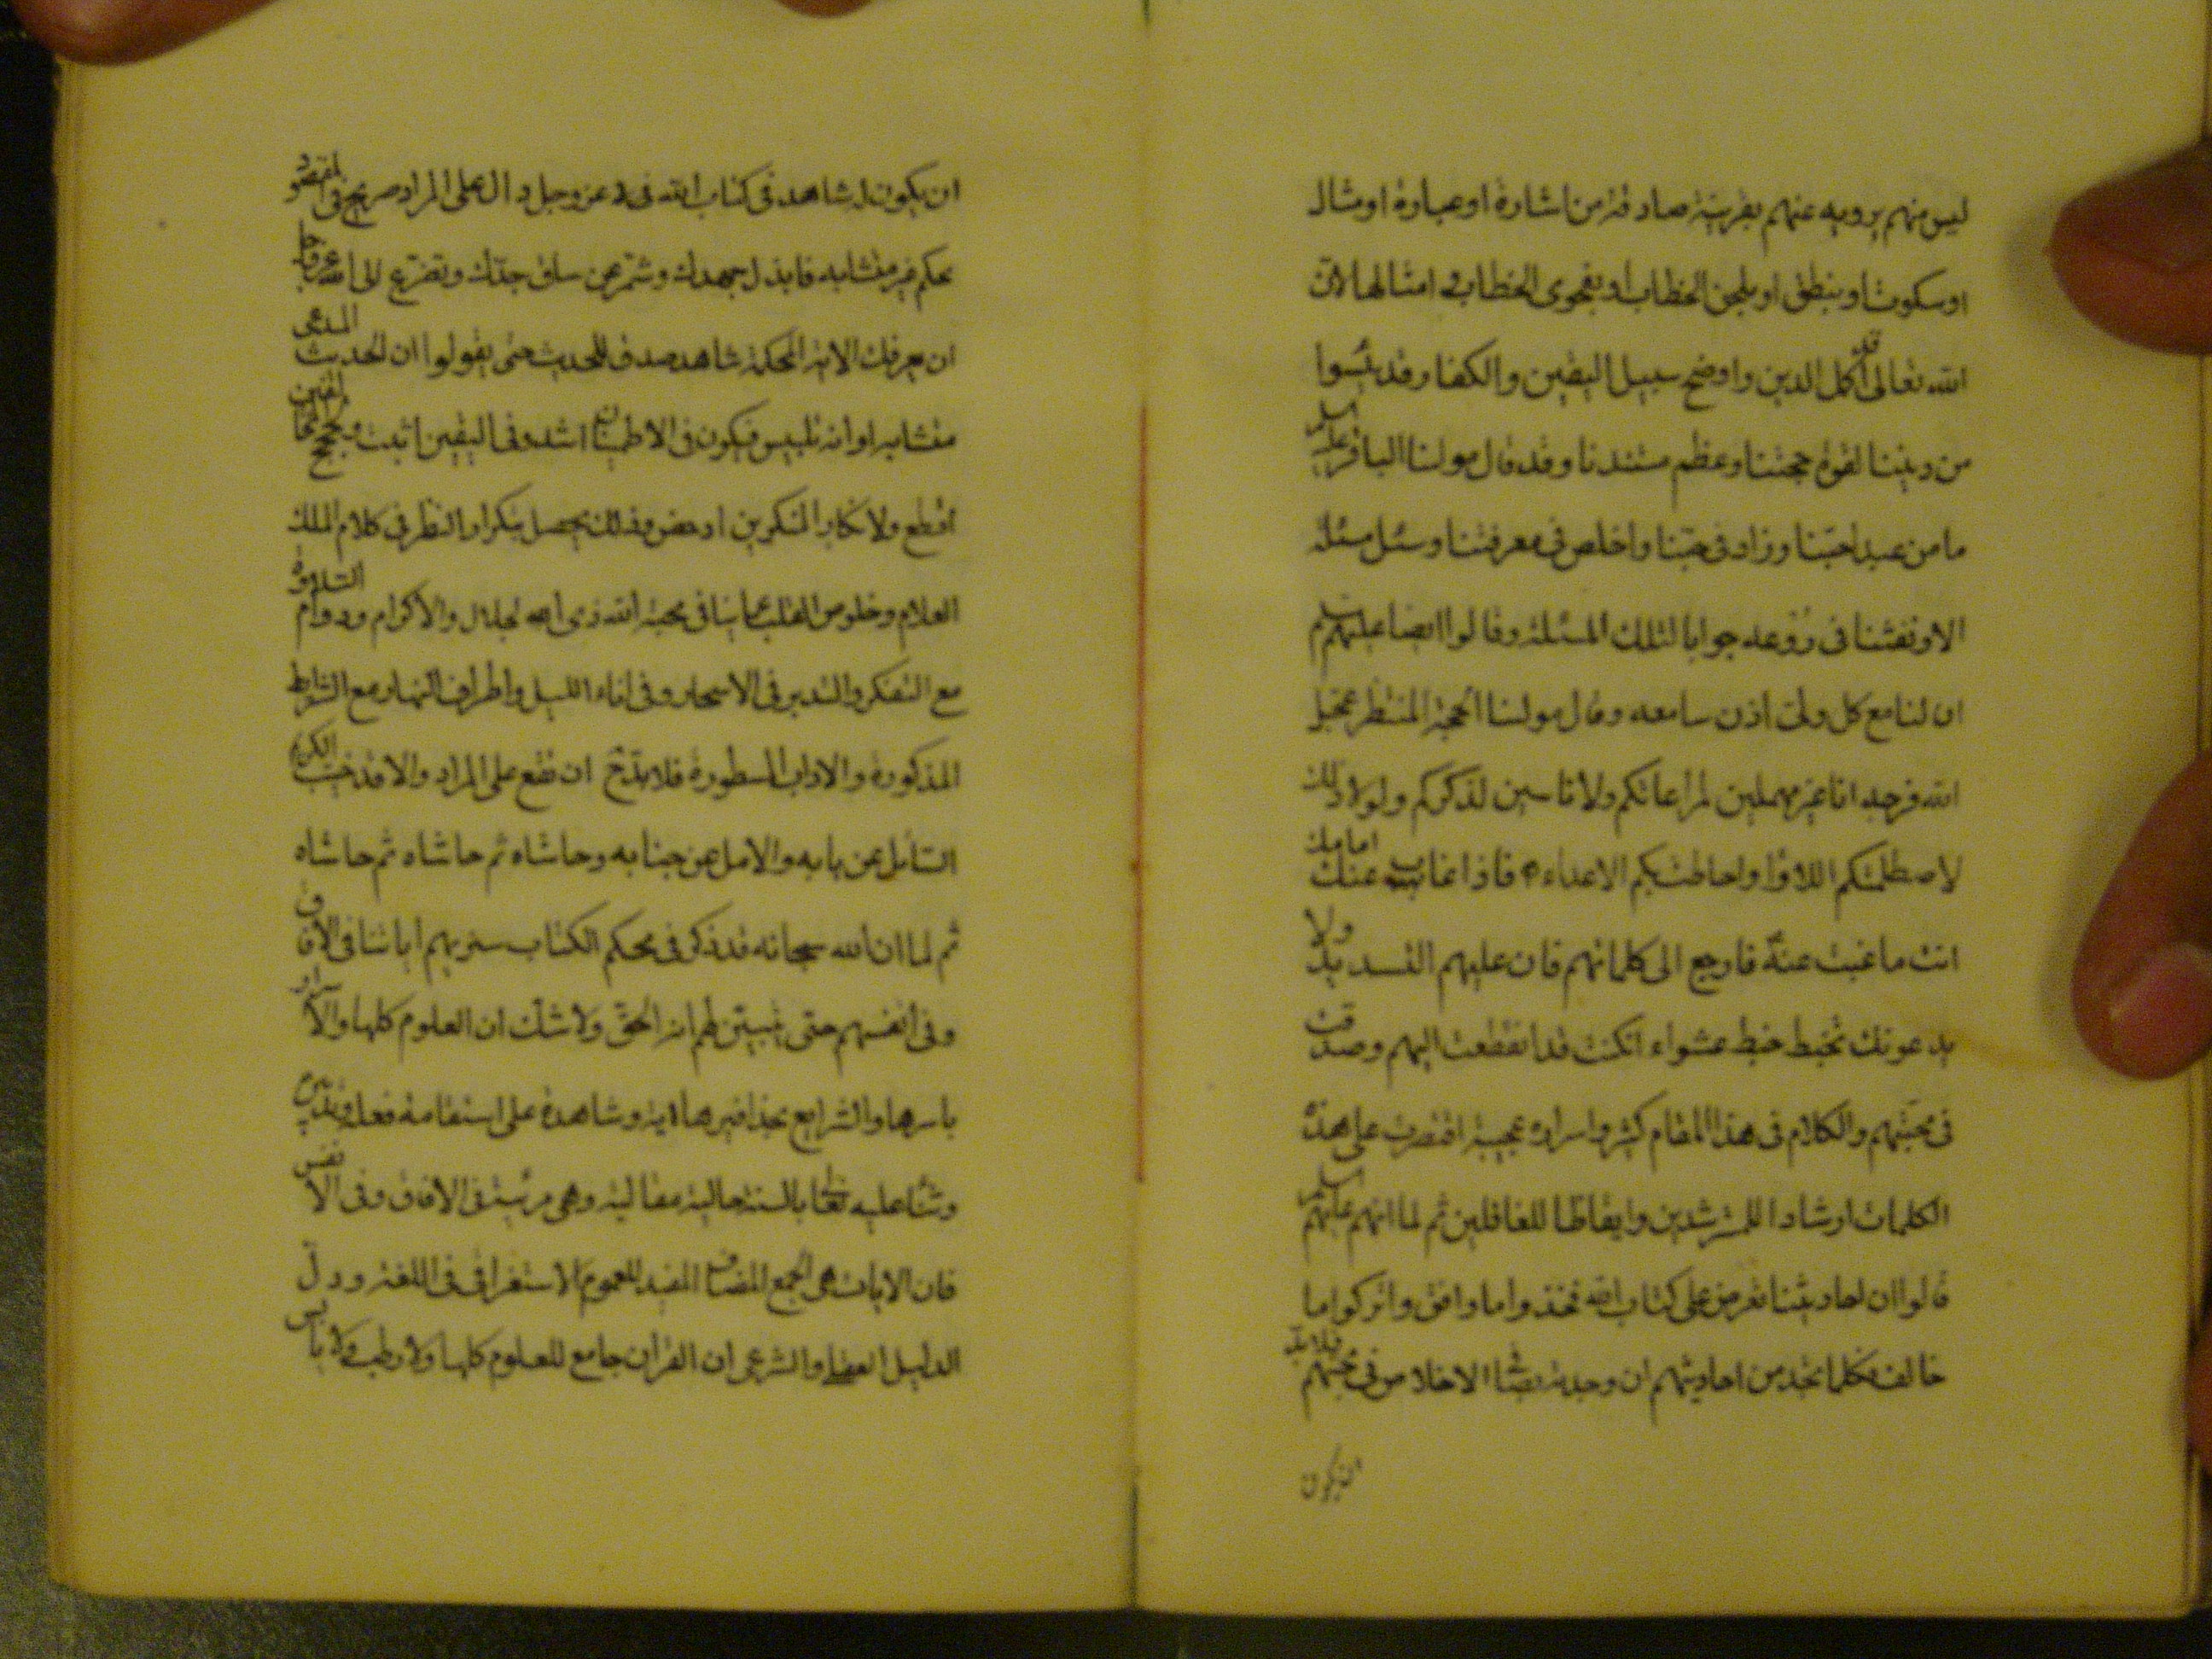 ليس منهم يرويه عنهم بقرينة صادقة من اشارة او عبارة او مثال
او سكوت او بنطق او بلحن الخطاب او بفحوى الخطاب و امثالها لان
الله تعالى قد اكمل الدين و اوضح سبيل اليقين و الكفار قد يئسوا
من ديننا لقوة حجتنا و عظم مستندنا و قد قال مولنا الباقر عليه السلم
ما من عبد احبنا و زاد فى حبنا و اخلص فى معرفتنا و سئل مسئلة
الا و نفثنا فى روعه جوابا لتلك المسئلة و قالوا ايضا عليهم السلم
ان لنا مع كل ولى اذن سامعه و قال مولنا الحجة المنتظر عجل
الله فرجه انا غير مهملين لمراعاتكم و لا ناسين لذكركم و لولا ذلك
لاصطلمتكم اللاوا و احاطت بكم الاعداء فاذا غاب عنك امامك
انت ما غبت عنه فارجع الى كلماتهم فان عليهم التسديد ولا
يدعونك تخبط خبط عشواء ان كنت قد انقطعت اليهم و صدقت
فى محبتهم و الكلام فى هذا المقام كثير و اسراره عجيبة اقتصرت على هذه
الكلمات ارشادا للمسترشدين و ايقاظا للغافلين ثم لما انهم عليهم السلم
قالوا ان احاديثنا تعرض على كتاب الله فخذوا ما وافق و اتركوا ما
خالف فكلما تجد من احاديثهم ان وجدته بصفا الاخلاص فى محبتهم فلابد
ان يكون
ان يكون له شاهد فى كتاب الله عز و جل دال على المراد صريح فى المقصود
محكم غير متشابه فابذل جهدك و شمر عن ساق جدك و تضرع الى الله عز و جل
ان يعرفك الاية المحكمة شاهد صدق للحديث حتى يقولوا ان الحديث المدعى
متشابه او انه تلبيس فيكون فى الاطمينان اشد و فى اليقين اثبت و لحجج المخالفين
اقطع و لانكار المنكرين ادحض و ذلك يحصل بتكرار النظر فى كلام الملك
العلام و خلوص القلب عما ينافى محبة الله ذى الجلال و الاكرام و دوام التلاوة
مع التفكر و التدبر فى الاسحار و فى اناء الليل و اطراف النهار مع الشرايط
المذكورة و الاداب المسطورة فلابد ح ان تقع على المراد و الا فقد خيب الكريم
السائل عن بابه و الامل عن جنابه و حاشاه ثم حاشاه ثم حاشاه
ثم لما ان الله سبحانه قد ذكر فى محكم الكتاب سنريهم اياتنا فى الافاق
و فى انفسهم حتى يتبين لهم انه الحق و لا شك ان العلوم كلها و الاسرار
باسرها و الشرايع بحذافيرها اية و شاهدة على استقامة فعله و تدبيره
و ثناء عليه تعالى بالسنة حالية مقالية و هى مرئية فى الافاق و فى الانفس
فان الايات هى الجمع المضاف المفيد للعموم الاستغراقى فى اللغة و دل
الدليل العقلى و الشرعى ان القران جامع للعلوم كلها و لا رطب و لا يابس